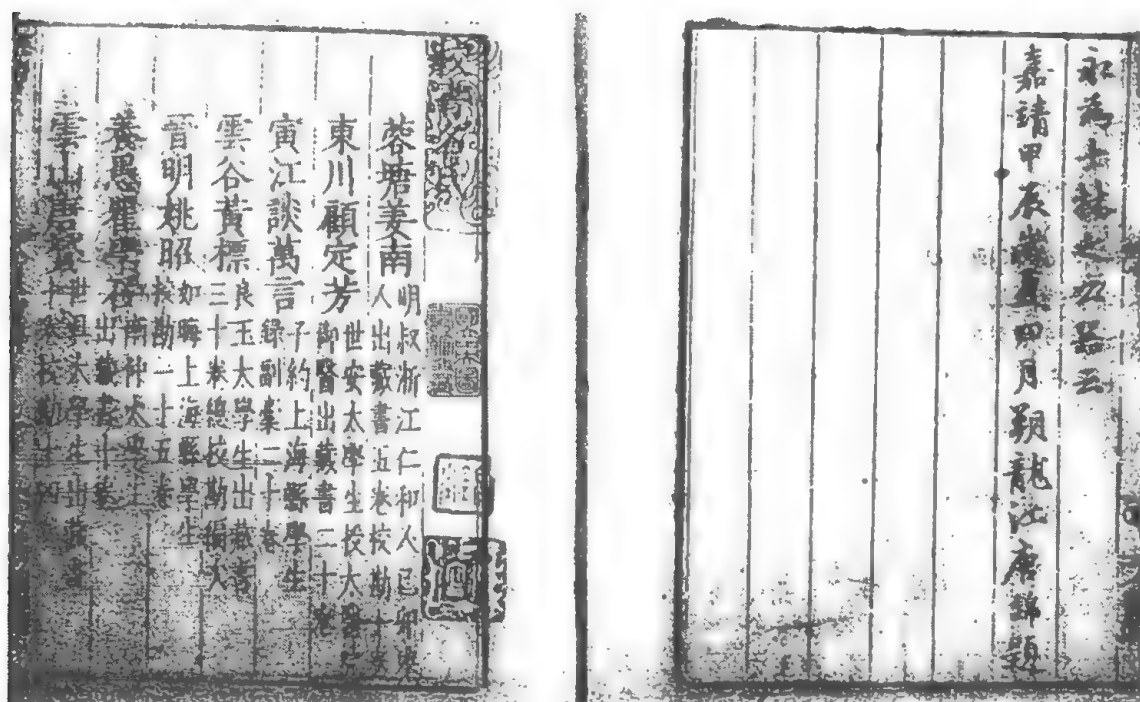 永為士林之公器云
嘉靖甲辰歲夏四月朔龍江唐錦題
校書名氏
蓉塘姜南 明叔浙江仁和人己卯舉
人出藏書五卷校勘十卷
東川顧定芳 世安太學生授太醫
御醫出藏書二十卷
寅江談萬言 子約上海縣學生
錄副稾二十卷
雲谷黃標 良玉太學生出藏書
三十卷總校勘編次
晉明姚昭 如晦上海縣學生
校勘一十五卷
養愚瞿學 南補太學生
出藏書十卷
雲山唐 世具太學生出藏書
十卷校勘